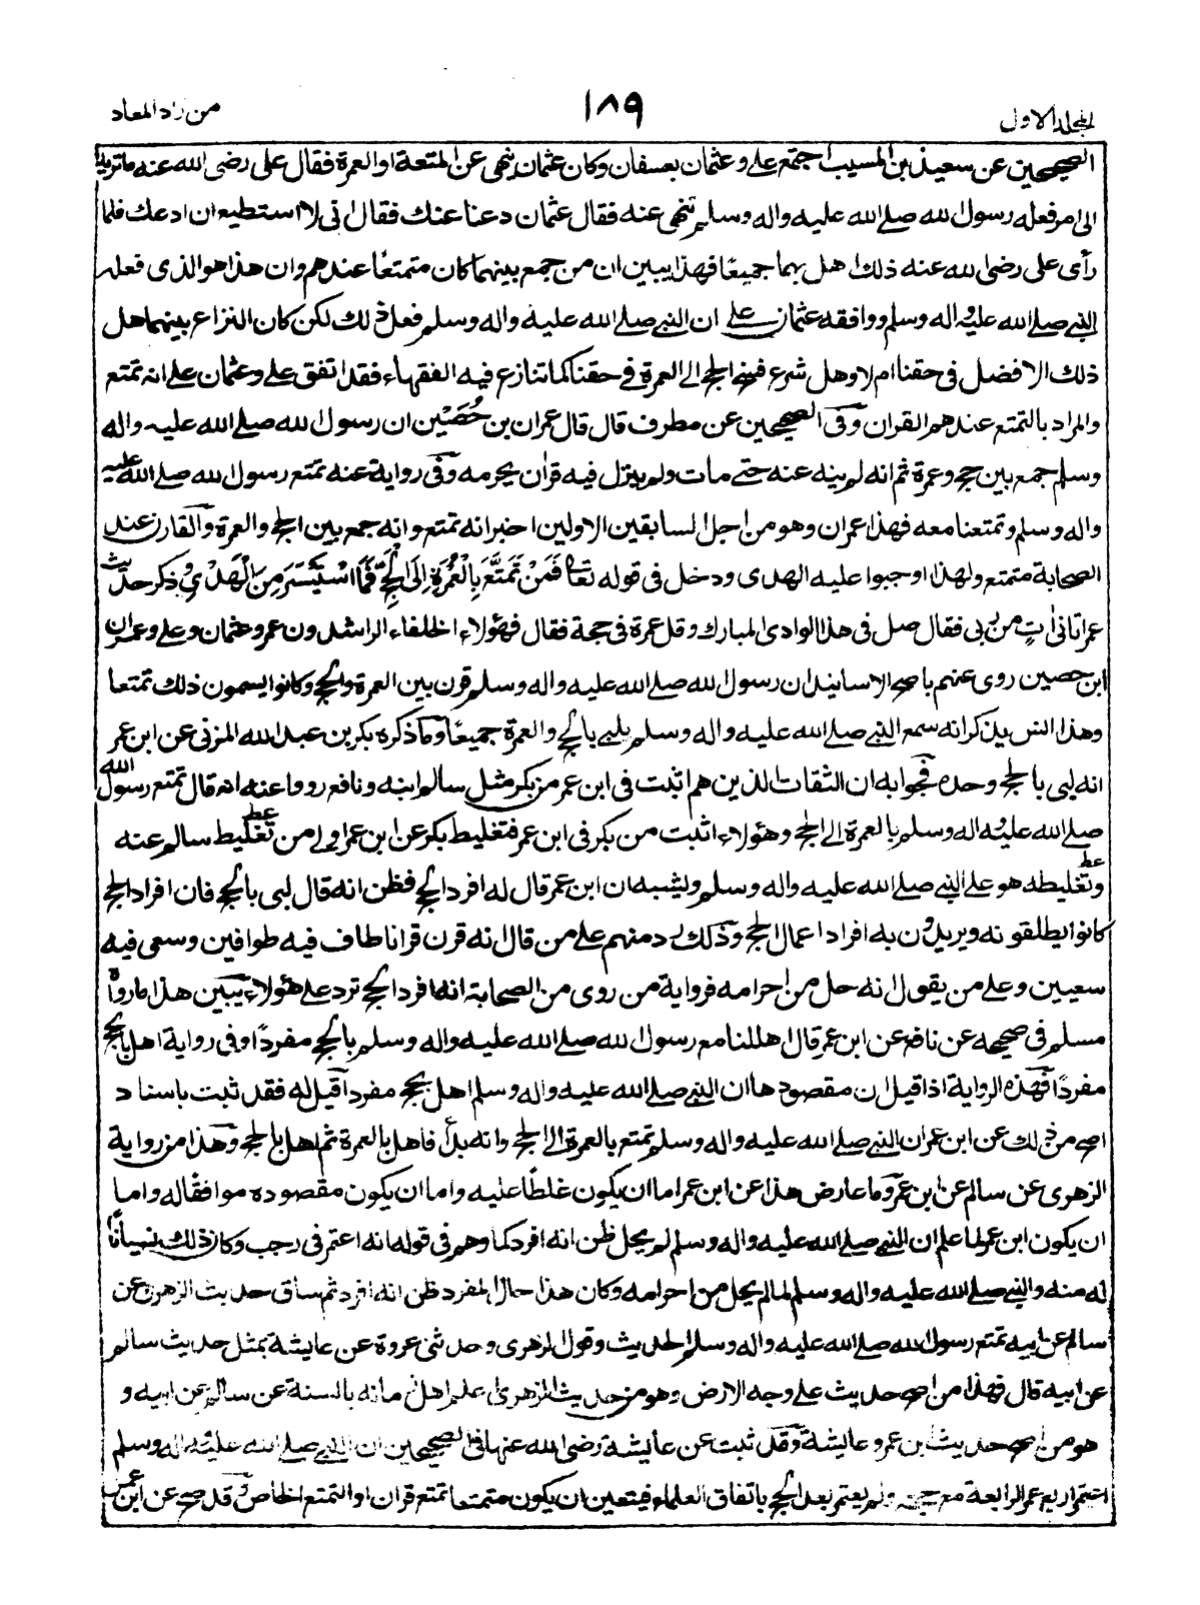 المجلد الاول
١٨٩
من زاد المعاد
الصحيحين عن سعيد بن المسيب اجتمع علي وعثمان بعسفان وكان عثمان ينهى عن المتعة او العمرة فقال علي رضى الله عنه ما تريد
الى امر فعله رسول الله صلے الله عليه واله وسلم تنهى عنه فقال عثمان دعنا عنك فقال انى لا استطيع ان ادعك فلما
رأى على رضى الله عنه ذلك اهل بهما جميعًا فهذا يبين ان من جمع بينهما كان متمتعًا عندهم وان هذا هو الذى فعله
النبے صلے الله عليه واله وسلم ووافقه عثمان علے ان النبے صلے الله عليه واله وسلم فعل ذلك لكن كان النزاع بينهما هل
ذلك الافضل فى حقنا ام لا وهل شرع فسخ الحج الے العمرة فے حقنا كما تنازع فيه الفقهاء فقد اتفق علے وعثمان علے انه تمتع
والمراد بالتمتع عندهم القران وفى الصحيحين عن مطرف قال قال عمران بن حُصَيْن ان رسول الله صلے الله عليه واله
وسلم جمع بين حج وعمرة ثم انه لم ينه عنه حتے مات ولم ينزل فيه قران يحرمه وفى رواية عنه تمتع رسول الله صلے الله عليه
واله وسلم وتمتعنا معه فهذا عمران وهو من اجل السابقين الاولين اخبر انه تمتع وانه جمع بين الحج والعمرة والقارن عند
الصحابة متمتع ولهذا اوجبوا عليه الهدى ودخل فى قوله تعالٰى فَمَنْ تَمَتَّعَ بِالْعُمْرَةِ اِلَى الْحَجِّ فَمَا اسْتَيْسَرَ مِنَ الْهَدْىِ وذكر حديث
عمر اتانى اٰتٍ من ربى فقال صل فى هذا الوادى المبارك وقل عمرة فى حجة فقال فهٰؤلاء الخلفاء الراشدون عمر وعثمان وعلے وعمران
ابن حصين روى عنهم باصح الاسانيد ان رسول الله صلے الله عليه واله وسلم قرن بين العمرة والحج وكانوا يسمون ذلك تمتعا
وهذا انس يذكر انه سمع النبے صلے الله عليه واله وسلم يلبے بالحج والعمرة جميعًا وما ذكره بكر بن عبد الله المزنى عن ابن عمر
انه لبى بالحج وحده فجوابه ان الثقات الذين هم اثبت فى ابن عمر من بكر مثل سالم ابنه ونافع رووا عنه انه قال تمتع رسول الله
صلے الله عليه واله وسلم بالعمرة الے الحج وهٰؤلاء اثبت من بكر فى ابن عمر فتغليط بكر عن ابن عمر اولے من تغليط سالم عنه
وتغليطه هو علے النبے صلے الله عليه واله وسلم ويشبه ان ابن عمر قال له افرد الحج فظن انه قال لبى بالحج فان افراد الحج
كانوا يطلقونه ويريدون به افراد اعمال الحج وذلك رد منهم علے من قال انه قرن قرانا طاف فيه طوافين وسعى فيه
سعيين وعلے من يقول انه حل من احرامه فرواية من روى من الصحابة انه افرد الحج ترد علے هٰؤلاء يبين هذا ما رواه
مسلم فى صحيحه عن نافع عن ابن عمر قال اهللنا مع رسول الله صلے الله عليه واله وسلم بالحج مفردًا وفى رواية اهل بالحج
مفردًا فهذه الرواية اذا قيل ان مقصودها ان النبے صلے الله عليه واله وسلم اهل بحج مفردا قيل له فقد ثبت باسناد
اصح من ذلك عن ابن عمر ان النبے صلے الله عليه واله وسلم تمتع بالعمرة الے الحج وانه بدأ فاهل بالعمرة ثم اهل بالحج وهذا من رواية
الزهرى عن سالم عن ابن عمر وما عارض هذا عن ابن عمر اما ان يكون غلطًا عليه واما ان يكون مقصوده موافقا له واما
ان يكون ابن عمر لما علم ان النبے صلے الله عليه واله وسلم لم يحل ظن انه افرد كما وهم فى قوله انه اعتمر فى رجب وكان ذلك نسيانًا
له منه والنبے صلے الله عليه واله وسلم لما لم يحل من احرامه وكان هذا حال المفرد ظن انه افرد ثم ساق حديث الزهرى عن
سالم عن ابيه تمتع رسول الله صلے الله عليه واله وسلم الحديث وقول الزهرى وحدثنى عروة عن عايشة بمثل حديث سالم
عن ابيه قال فهذا من اصح حديث علے وجه الارض وهو من حديث الزهرى اعلم اهل زمانه بالسنة عن سالم عن ابيه و
هو من اصح حديث ابن عمر وعايشة وقد ثبت عن عايشة رضى الله عنها فى الصحيحين ان النبے صلے الله عليه واله وسلم
اعتمر اربع عمر الرابعة مع حجته ولم يعتمر بعد الحج باتفاق العلماء فيتعين ان يكون متمتعا تمتع قران او التمتع الخاص وقد صح عن ابن عمر